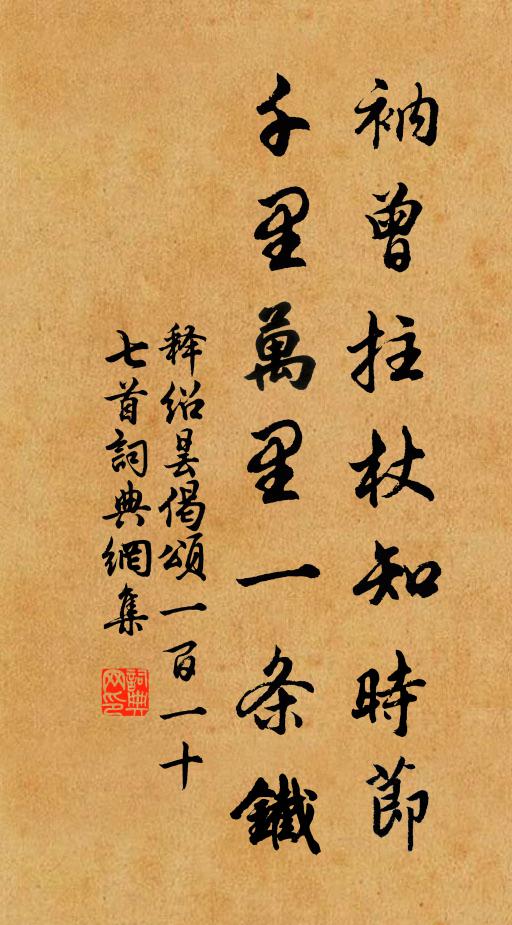 衲曾拄杖知時節
千里萬里一条鐵
释绍曇偈頌一百一十
七首詞典網集
詞典网印